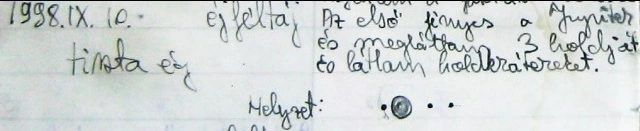 1998.IX.10. éjféltáj Az első fényes a Jupiter
tiszta ég és megláttam 3 holdját
és láttam holdkrátereket.
Helyzet: